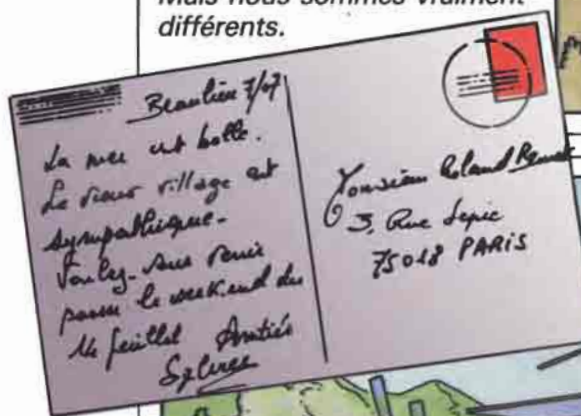 Mais nous sommes vraiment
différents.
Beaulieu 7/07
La mer est belle.
Le vieux village est
sympathique.
Voulez-vous venir
passer le week-end du
14 juillet Amitiés
Monsieur Roland
3, Rue Lepic
75018 PARIS